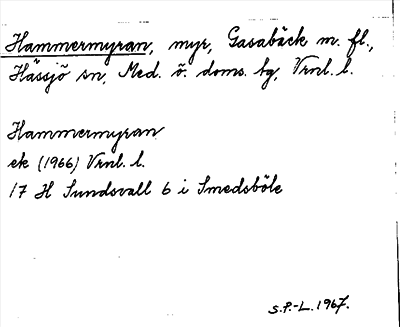 Hammermyran, myr, Gasabäck m. fl.,
Hässjö sn, Med. ö. doms. bg, Vrnl. l.
Hammermyran
ek (1966) Vrnl. l.
17 H Sundsvall 6 i Smedsböle
S.P.-L. 1967.